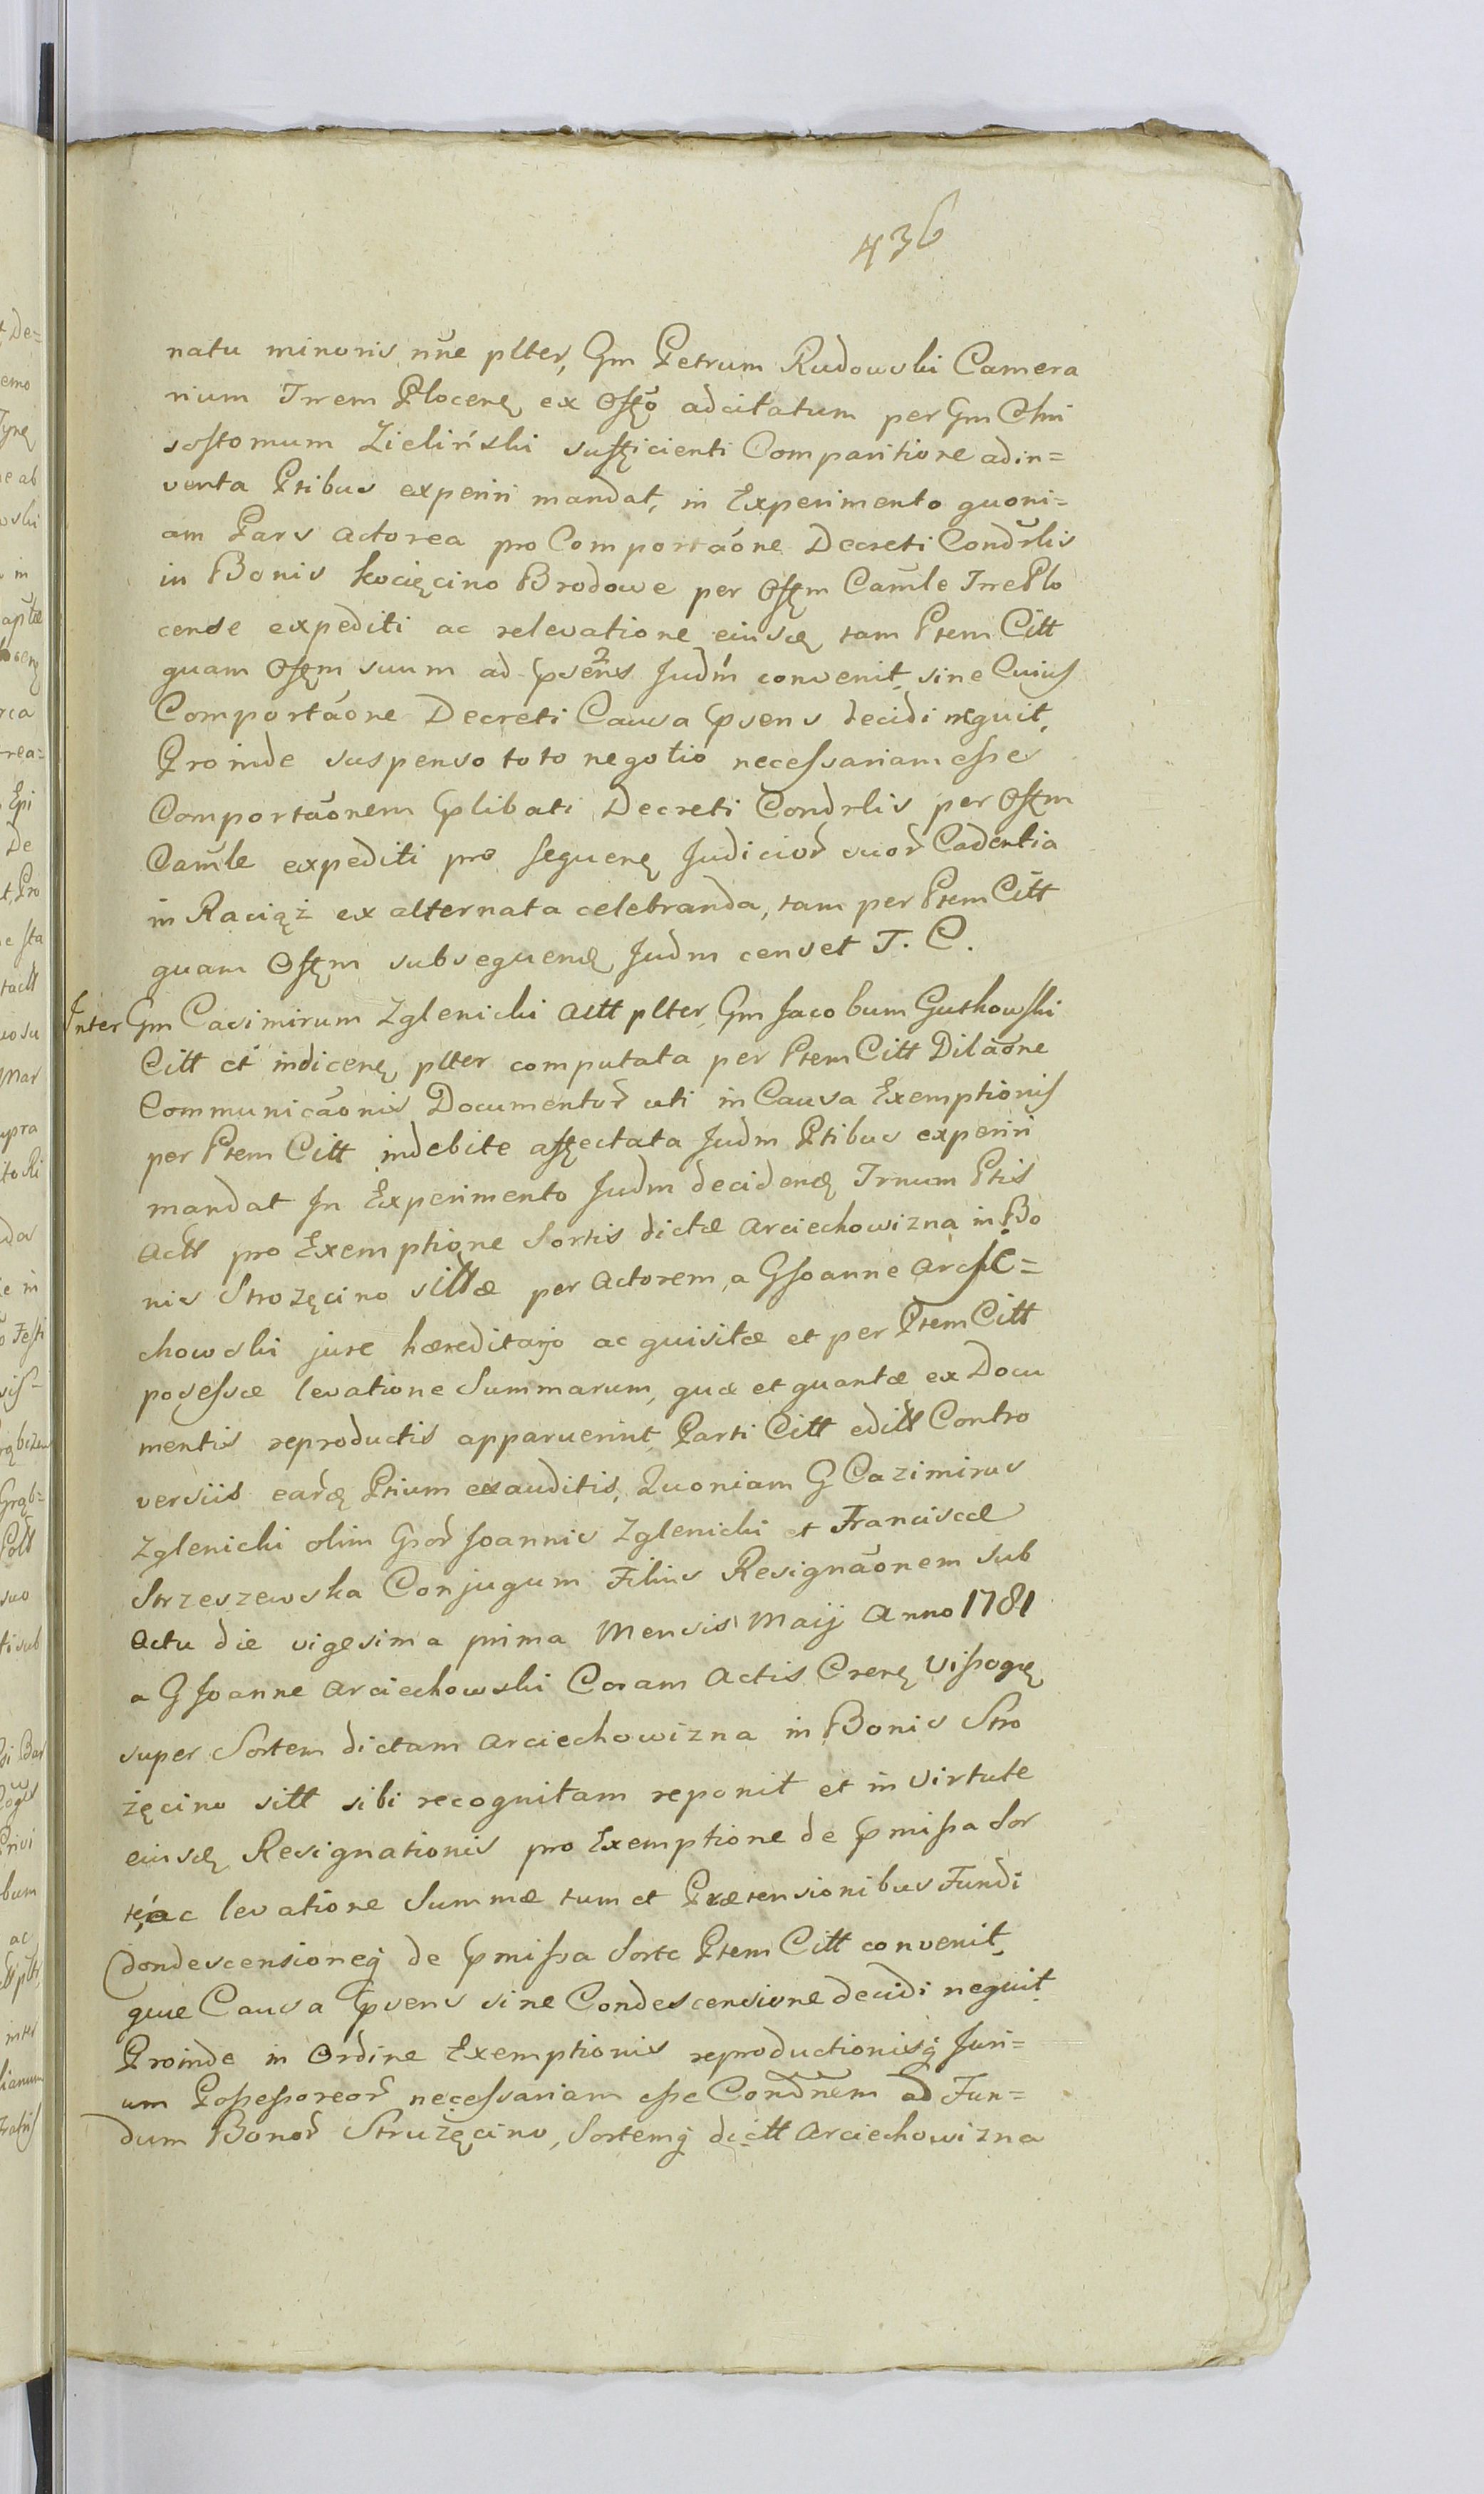 436
natu minoris nn̄e plter, Gm Petrum Rudowski Camera
rium Trrem Plocenę ex Offo adcitatum per Gm Chri
sostomum Zieliński sufficienti Comparitione adin=
venta Ptibus experiri mandat, in Experimento quoni=
am Pars actorea pro Comportaóne Decreti Condrlis
in Bonis Kocięcino Brodowe per Offm Camle TrrePlo
cense expediti ac relevatione eiusdę tam Ptem Citt
quam Offm suum ad psens Judm convenit, sine Cuius
Comportaóne Decreti Causa psens decidi nequit,
Proinde suspenso toto negotio necessariam esse
Comportaónem plibati Decreti Condrlis per Offm
Camle expediti pro sequenę Judicior suor Cadentia
in Raciąż ex alternata celebranda, tam per Ptem Citt
quam Offm subsequendę Judm censet T. C.
Inter Gm Casimirum Zglenicki Actt plter, Gm Jacobum Gutkowski
Citt et indicenę plter computata per Ptem Citt Dilaóne
Communicaónis Documentor uti in Causa Exemptionis
per Ptem Citt indebite affectata Judm Ptibus experiri
mandat In Experimento Judm decidendę Trnum Ptis
Actt pro Exemptione Sortis dictæ Arciechowizna in Bo
nis Strozęcino sittæ per Actorem, a GJoanne Arcie=
chowski jure hæreditarjo acquisitæ et per Ptem Citt
posessæ levatione Summarum, quæ et quantæ ex Docu
mentis reproductis apparuerint Parti Citt editt Contro
versiis eardę Ptium exauditis, Quoniam G Cazimirus
Zglenicki olim Gror Joannis Zglenicki et Franciscæ
Strzeszewska Conjugum Filius Resignaónem sub
Actu die vigesima prima Mensis Maij Anno 1781
a G Joanne Arciechowski Coram Actis Crenę Vissogrę
super Sortem dictam Arciechowizna in Bonis Stro
żęcino sitt sibi recognitam reponit et in Virtute
eiusdę Resignationis pro Exemptione de pmissa Sor
te, ac levatione Summæ tum et Prætensionibus Fundi
Condescensioneq de pmissa Sorte Ptem Citt convenit,
quæ Causa psens sine Condescensione decidi nequit
Proinde in Ordine Exemptionis reproductionisq Juri=
um Possessoreor necessariam esse Condnem ad Fun=
dum Bonor Strużęcino, Sortemq dictt Arciechowizna